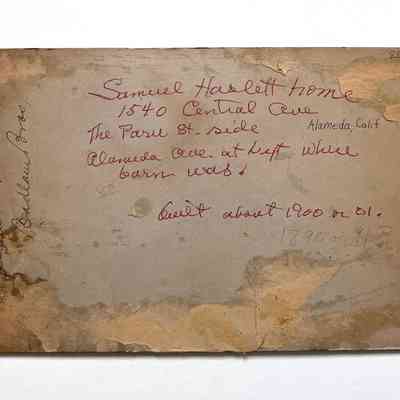 Samuel Haslett home
1540 Central Ave
The Paru St. side
Alameda, Calif
Alameda Ave. at left where
barn was.
Built about 1900 or 01.
1890 or 91
Bros